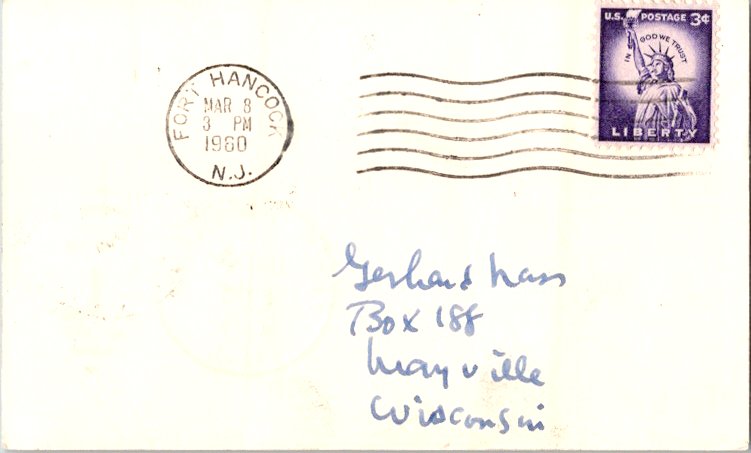 FORT HANCOCK
MAR 8
3 PM
1960
N.J.
U.S. POSTAGE 3¢
IN GOD WE TRUST
LIBERTY
Gerhard Nass
Box 188
Mayville
Wisconsin